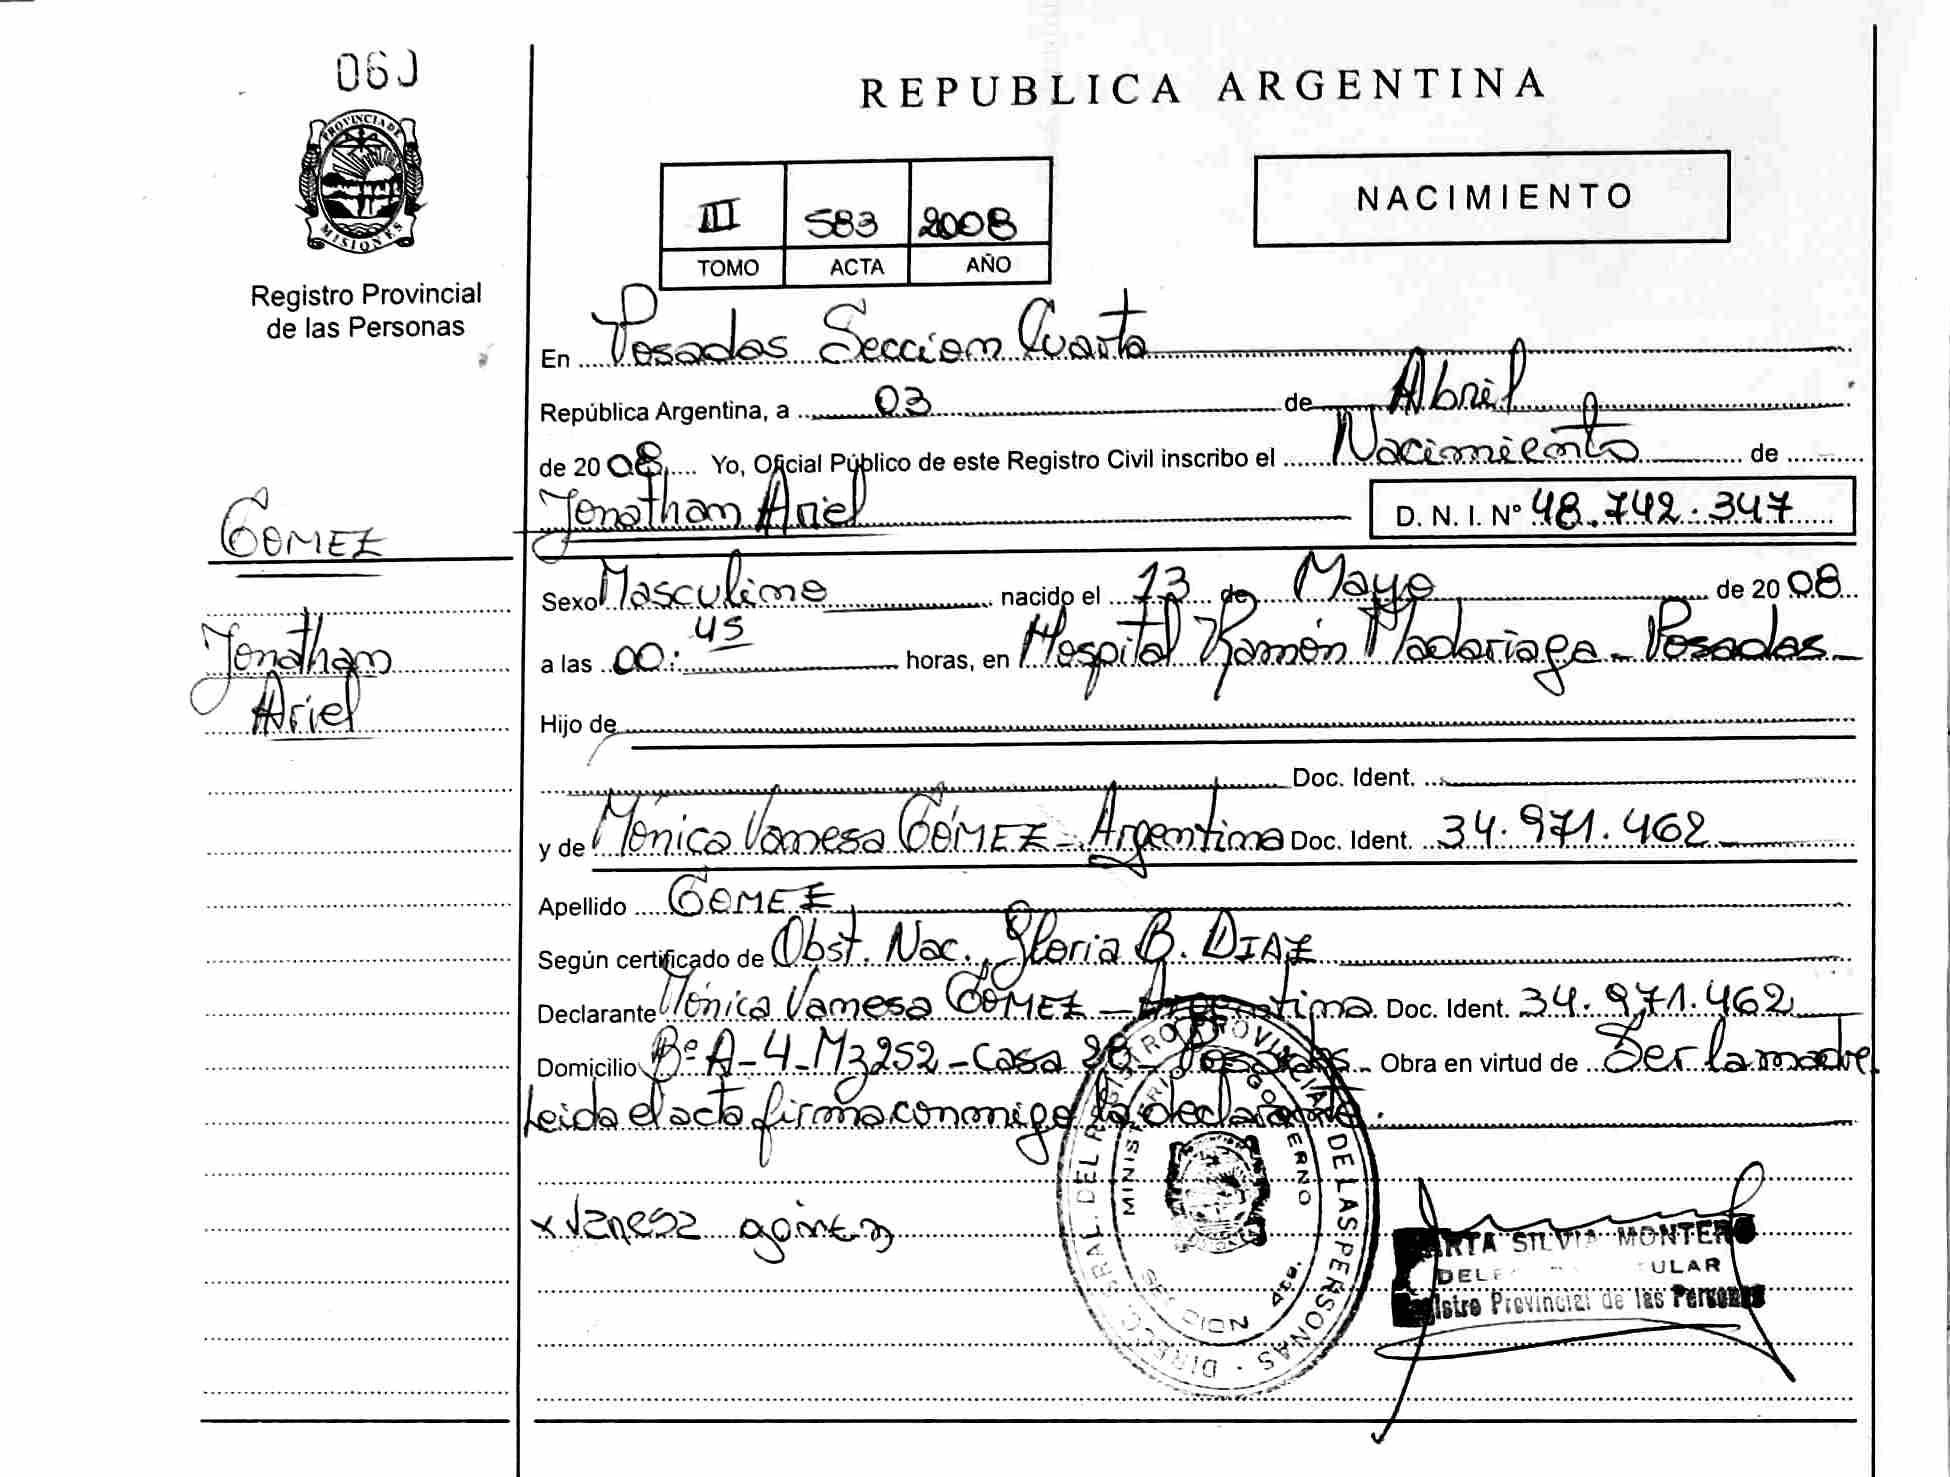 060
PROVINCIA DE
MISIONES
Registro Provincial
de las Personas
REPUBLICA ARGENTINA
NACIMIENTO
III 583 2008
TOMO ACTA AÑO
En Posadas Seccion Cuarta
República Argentina, a 03 de Abril
de 2008 Yo, Oficial Público de este Registro Civil inscribo el Nacimiento de
Jonathan Ariel D. N. I. Nº 48.742.347
GOMEZ
Jonathan
Ariel
Sexo Masculino nacido el 13 de Mayo de 2008
a las 00:45 horas, en Hospital Ramón Madariaga - Posadas -
Hijo de
Doc. Ident.
y de Mónica Vanesa GÓMEZ - Argentina Doc. Ident. 34.971.462
Apellido GOMEZ
Según certificado de Obst. Nac. Gloria B. DIAZ
Declarante Mónica Vanesa GÓMEZ - Argentina. Doc. Ident. 34.971.462
Domicilio Bº A-4-Mz252-Casa 28- Posadas - Obra en virtud de Ser la madre
Leida el acta firma conmigo la declarante.
x Vanesa gómez
REGISTRO PROVINCIAL DE LAS PERSONAS
MINISTERIO GOBIERNO
SILVIA MONTERO
Registro Provincial de las Personas